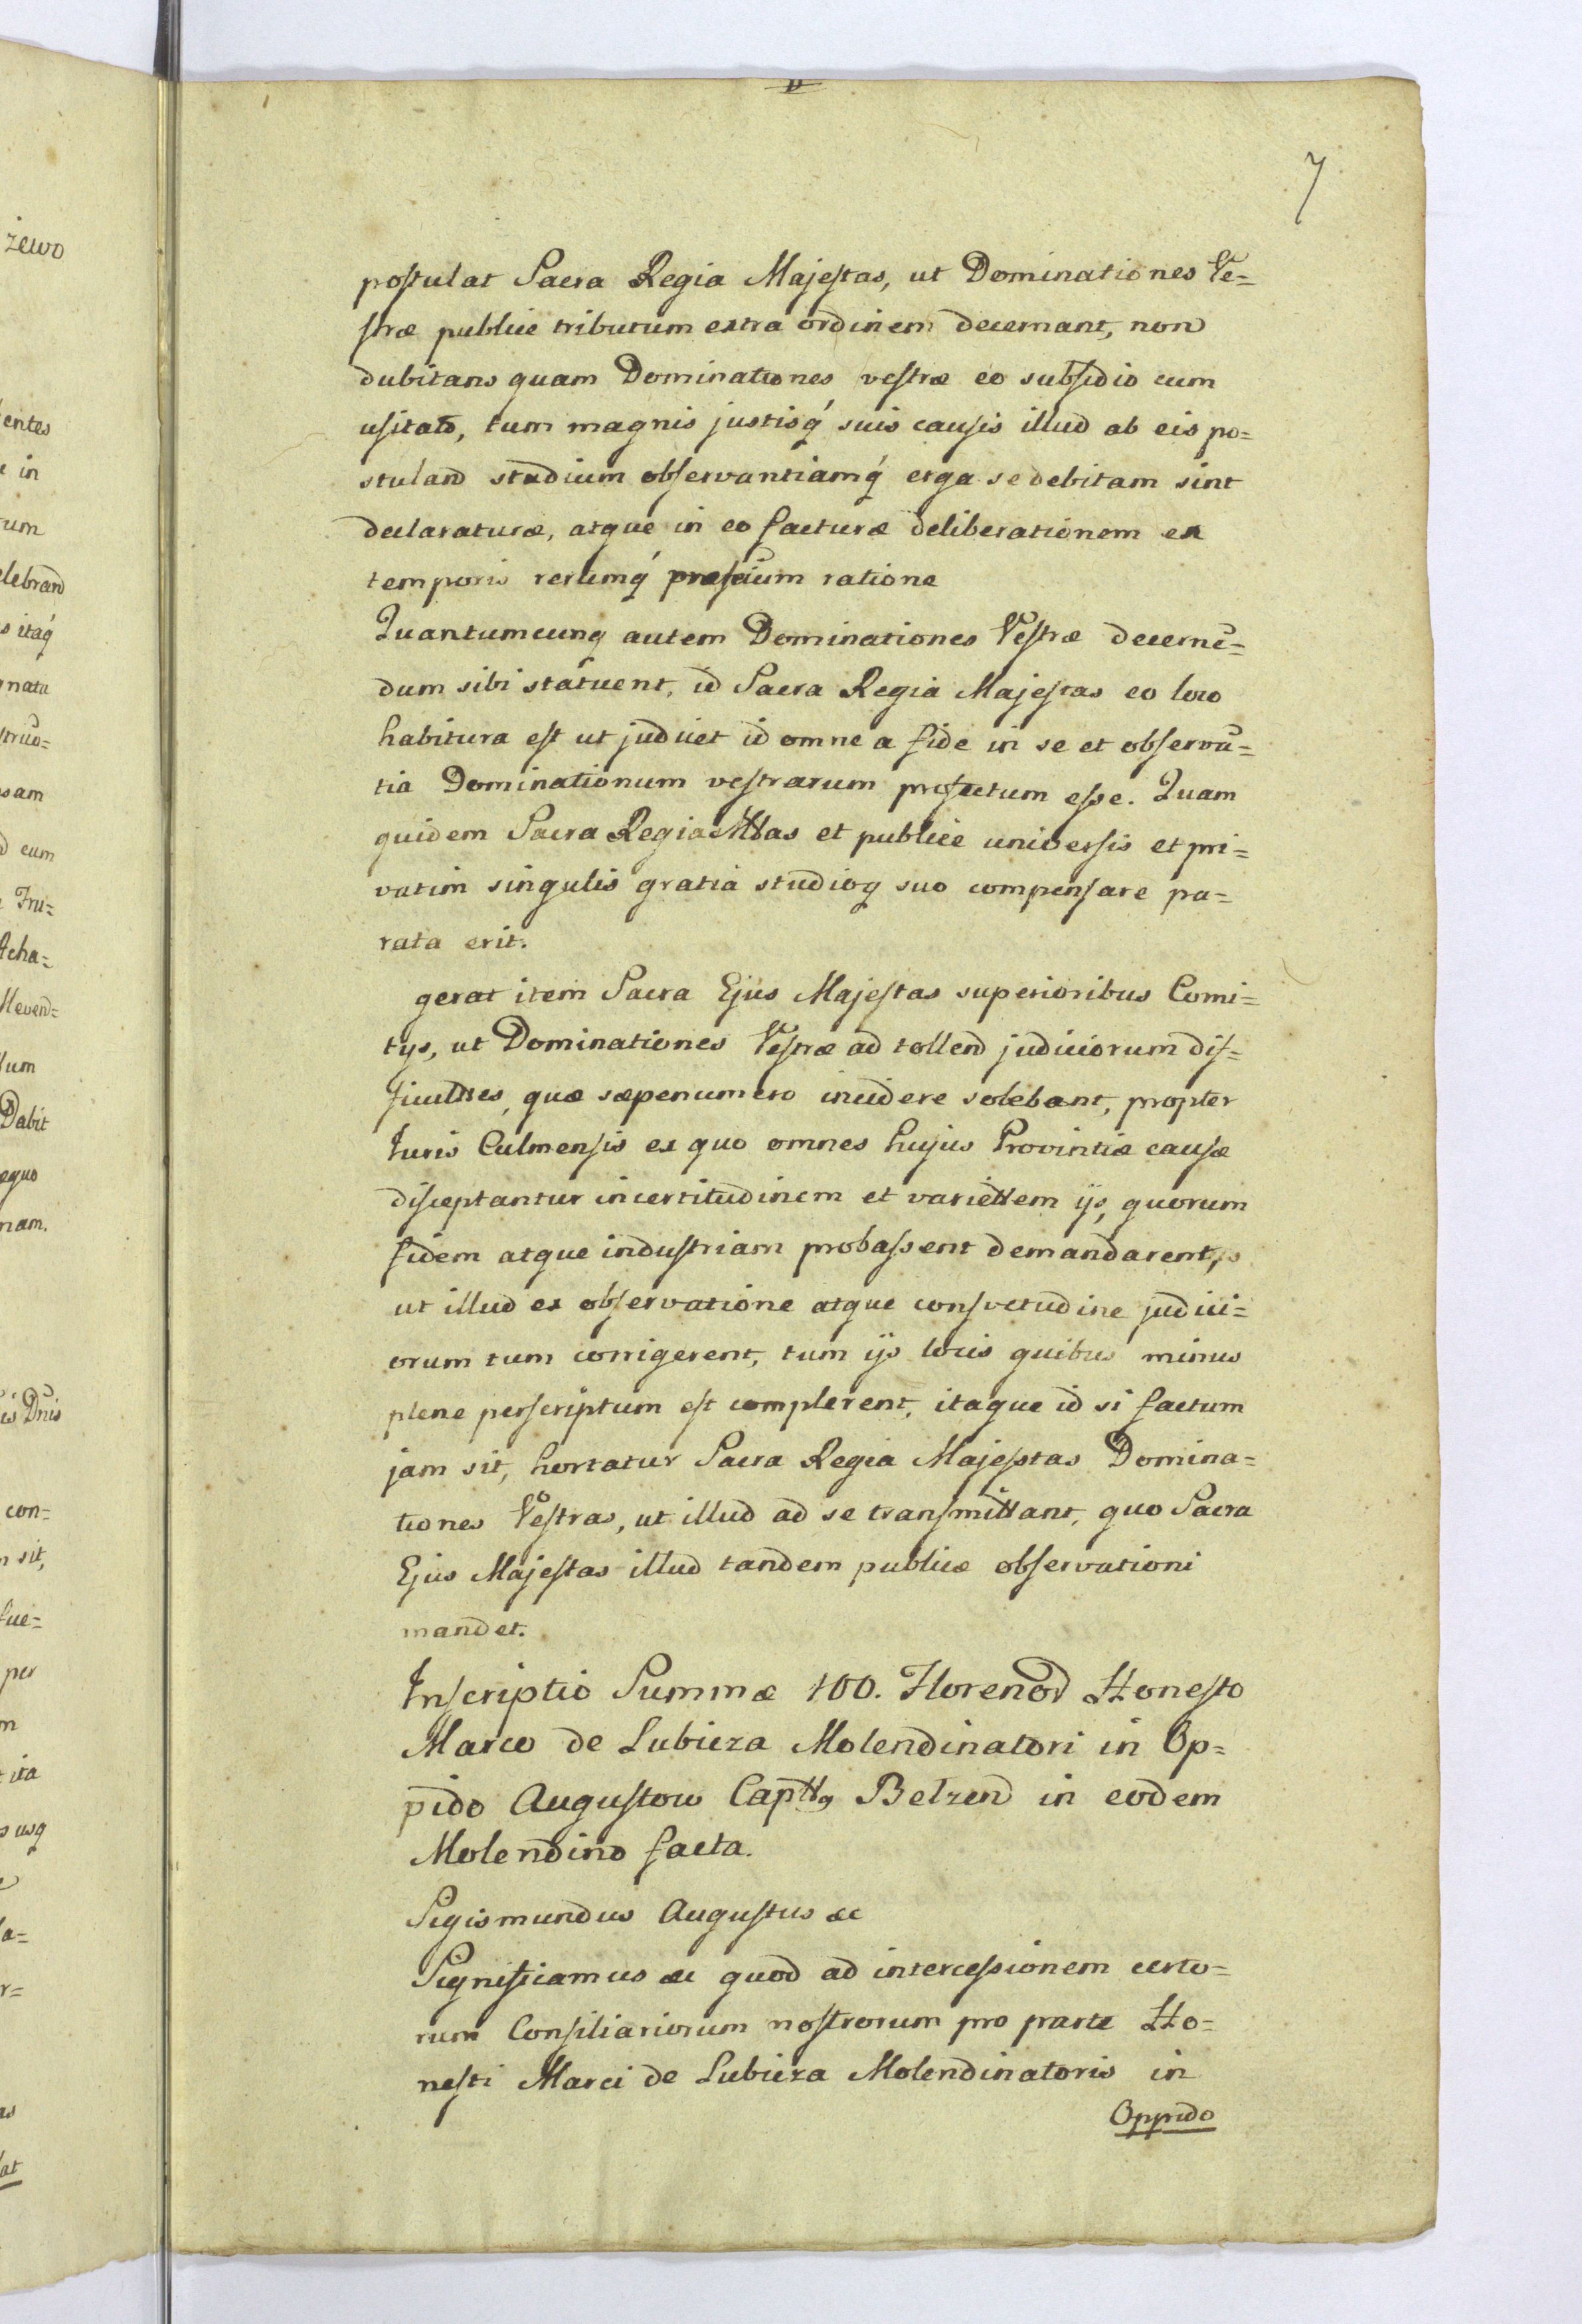 7
postulat Sacra Regia Majestas, ut Dominationes Ve=
stræ publice tributum extra ordinem decernant, non
dubitans quam Dominationes vestræ eo subsidio cum
usitato, tum magnis justisq́ suis causis illud ab eis po=
stuland studium observantiamq́ erga se debitam sint
declaraturæ, atque in eo facturæ deliberationem ex
temporis rerumq́ ratione
Quantumcunq autem Dominationes Vestræ decernē=
dum sibi statuent, id Sacra Regia Majestas eo loco
habitura est ut judicet id omne a fide in se et observā=
tia Dominationum vestrarum profectum esse. Quam
quidem Sacra Regia Mttas et publice universis et pri=
vatim singulis gratia studioq suo compensare pa=
rata erit.
gerat item Sacra Ejus Majestas superioribus Comi=
tijs, ut Dominationes Vestræ ad tollend judiciorum dif=
ficulttes, quæ sæpenumero incidere solebant, propter
Juris Culmensis ex quo omnes hujus Provintiæ causæ
disceptantur incertitudinem et variettem ijs, quorum
fidem atque industriam probassent demandarent,
ut illud ex observatione atque consvetudine judici=
orum tum corrigerent, tum ijs locis quibus minus
plene perscriptum est complerent, itaque id si factum
jam sit, hortatur Sacra Regia Majestas Domina=
tiones Vestras, ut illud ad se transmittant, quo Sacra
Ejus Majestas illud tandem publicæ observationi
mandet.
Inscriptio Summæ 100. Florenor Honesto
Marco de Lubicza Molendinatori in Op=
pido Augustow Capttq Belzen in eodem
Molendino facta.
Sigismundus Augustus &c
Significamus &c quod ad intercessionem certo=
rum Consiliariorum nostrorum pro parte Ho=
nesti Marci de Lubicza Molendinatoris in
Oppido
żewo
entes
in
um
elebrand
s itaq́
nata
sam
cum
Fru=
Acha=
um
Dabit
æquo
nam.
is Dnis
con=
sit,
fue=
per
m
ita
usq
a=
r=
at